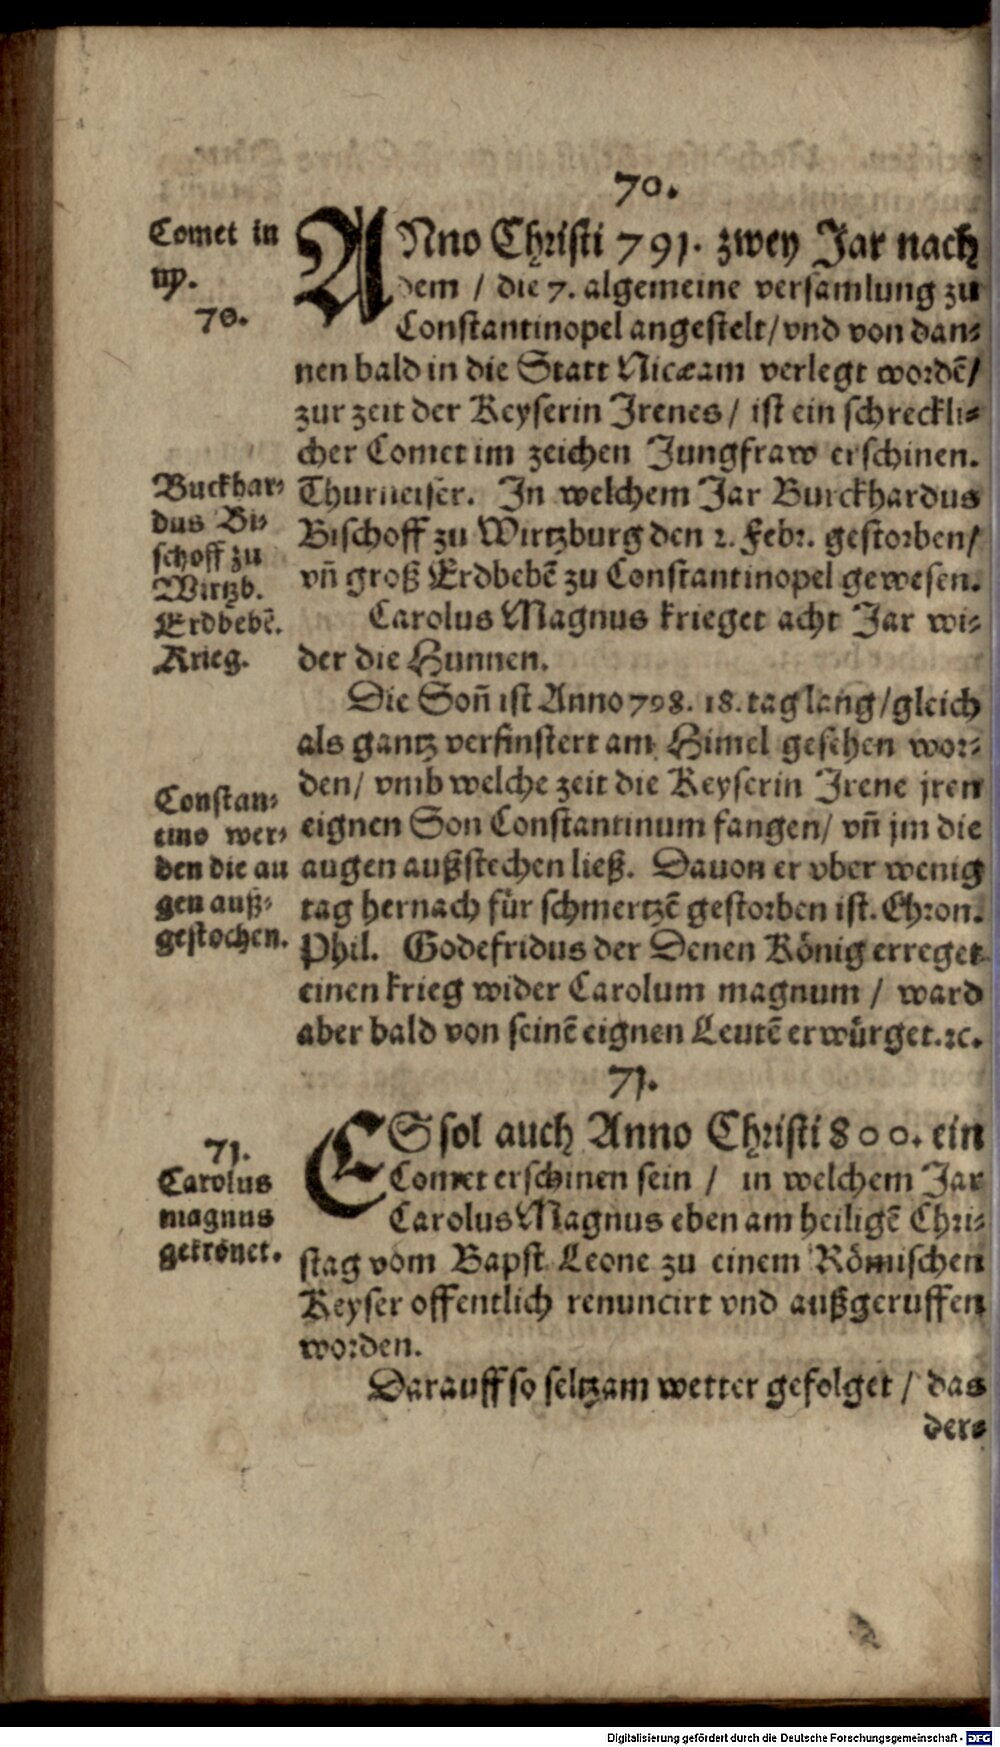 70.
Comet in
♍.
70.
ANno Christi 791. zwey Jar nach
dem / die 7. algemeine versamlung zu
Constantinopel angestelt/ vnd von dan⸗
nen bald in die Statt Nicæam verlegt wordē/
zur zeit der Keyserin Irenes / ist ein schreckli⸗
cher Comet im zeichen Jungfraw erschinen.
Buckhar⸗
dus Bi⸗
schoff zu
Wirtzb.
Erdbebē.
Krieg.
Thurneiser. In welchem Jar Burckhardus
Bischoff zu Wirtzburg den 2. Febr. gestorben/
vñ groß Erdbebē zu Constantinopel gewesen.
Carolus Magnus krieget acht Jar wi⸗
der die Hunnen.
Die Soñ ist Anno 798. 18. tag lang/ gleich
als gantz verfinstert am Himel gesehen wor⸗
den/ vmb welche zeit die Keyserin Irene jren
Constan⸗
tino wer⸗
den die au
gen auß⸗
gestochen.
eignen Son Constantinum fangen/ vñ jm die
augen außstechen ließ. Dauon er vber wenig
tag hernach für schmertzē gestorben ist. Chron.
Phil. Godefridus der Denen König erreget
einen krieg wider Carolum magnum / ward
aber bald von seinē eignen Leutē erwürget. ꝛc.
71.
71.
Carolus
magnus
gekrönet.
ES sol auch Anno Christi 800. ein
Comet erschinen sein / in welchem Jar
Carolus Magnus eben am heiligē Chri⸗
stag vom Bapst Leone zu einem Römischen
Keyser offentlich renuncirt vnd außgeruffen
worden.
Darauff so seltzam wetter gefolget / das
der⸗
Digitalisierung gefördert durch die Deutsche Forschungsgemeinschaft - DFG